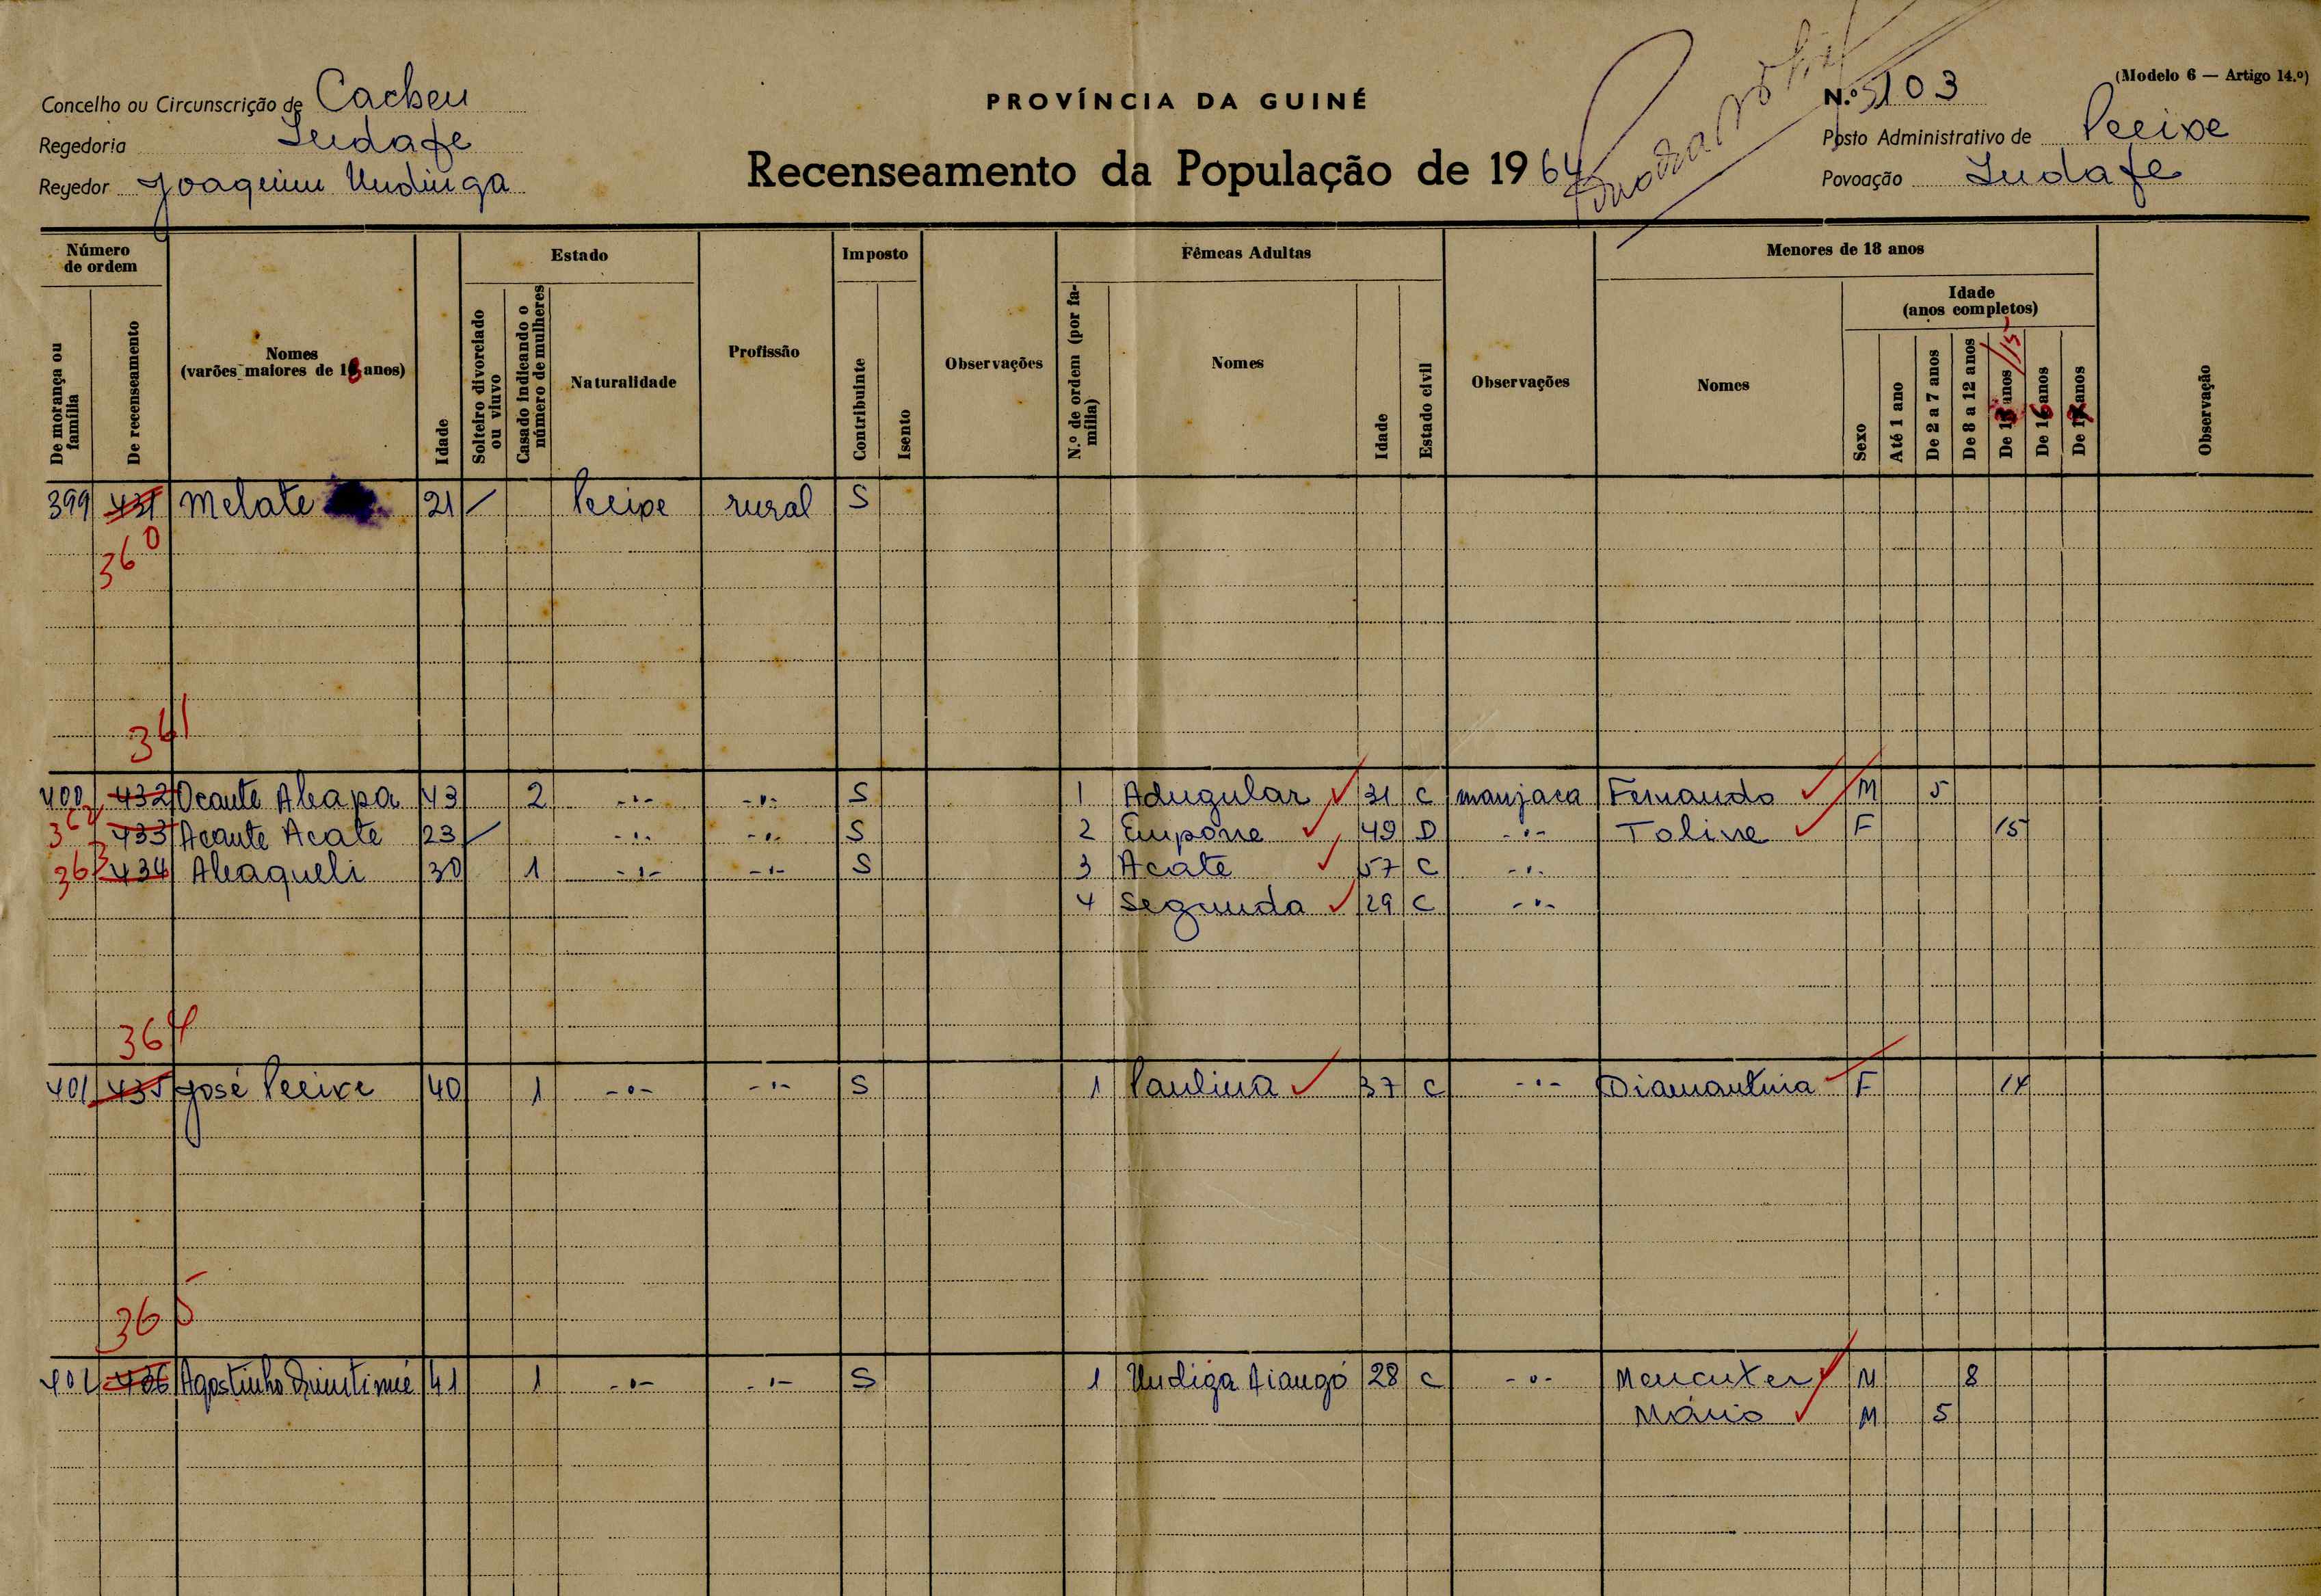 (Modelo 6 — Artigo 14.º)
Concelho ou Circunscrição de Cacheu
PROVÍNCIA DA GUINÉ
N.º 5103
Regedoria Iudafe
Posto Administrativo de Pecixe
Regedor Joaquim Undinga
Recenseamento da População de 1964
Povoação Iudafe
Número de ordem
Estado
Imposto
Fêmeas Adultas
Menores de 18 anos
De morança ou família
De recenseamento
Nomes (varões maiores de 18 anos)
Idade
Solteiro divorciado ou viuvo
Casado indicando o número de mulheres
Naturalidade
Profissão
Contribuinte
Isento
Observações
N.º de ordem (por família)
Nomes
Idade
Estado civil
Observações
Nomes
Sexo
Idade (anos completos)
Até 1 ano
De 2 a 7 anos
De 8 a 12 anos
De 13 anos /15
De 16 anos
De 17 anos
Observação
399 431 Melate 21 / Pecixe rural S
360
361
400 432 Ocante Aleapa 43 2 -"- -"- S 1 Adugular 31 C manjaca Fernando M 5
362 433 Acante Acate 23 / -"- -"- S 2 Empone 49 D -"- Toline F 15
363 434 Aleaqueli 30 1 -"- -"- S 3 Acate 57 C -"-
4 Segunda 29 C -"-
364
401 435 José Pecixe 40 1 -"- -"- S 1 Paulina 37 C -"- Diamantina F 14
365
402 436 Agostinho Quintimé 41 1 -"- -"- S 1 Undiga Aiangó 28 C -"- Mencuter M 8
Mário M 5